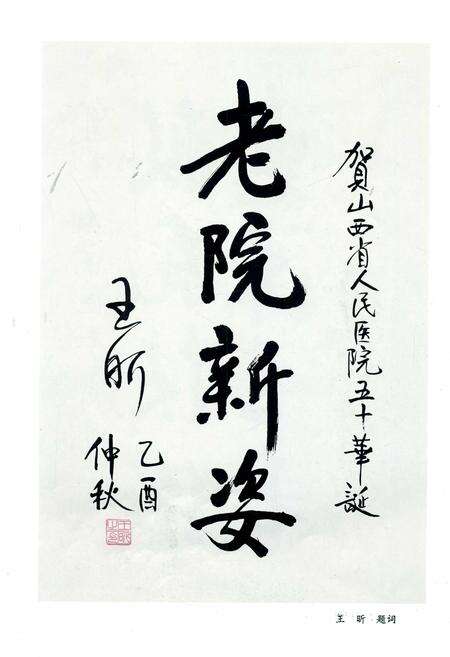 賀山西省人民医院五十華誕
老院新姿
乙酉
仲秋
王昕
王昕 题词